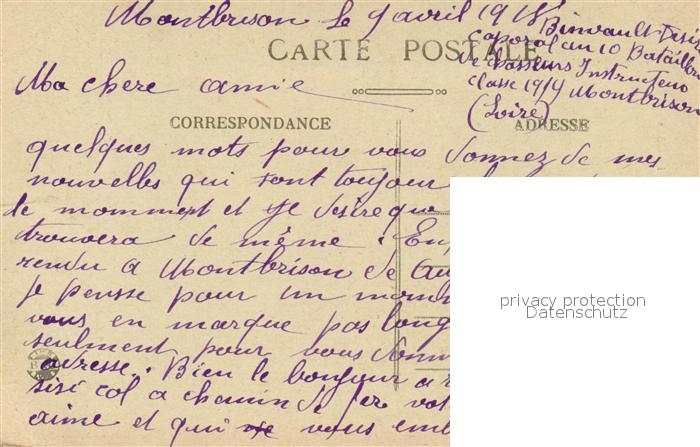 Montbrison le 9 avril 191
Caporal au 10 Bataillon
de chasseurs Instructeur
classe 1914 Montbrison
(Loire)
CARTE POSTALE
Ma chere amie
CORRESPONDANCE
ADRESSE
quelques mots pour vous donnez de mes
nouvelles qui sont toujour
le momment et je desire que
trouvera de même. En
rendu a Montbrison de
je pensse pour un mom
vous en marque pas long
seulment pour vous donn
adresse. Bien le bonjour a
col a chemin de fer vot
aime et qui vous emb
privacy protection
Datenschutz